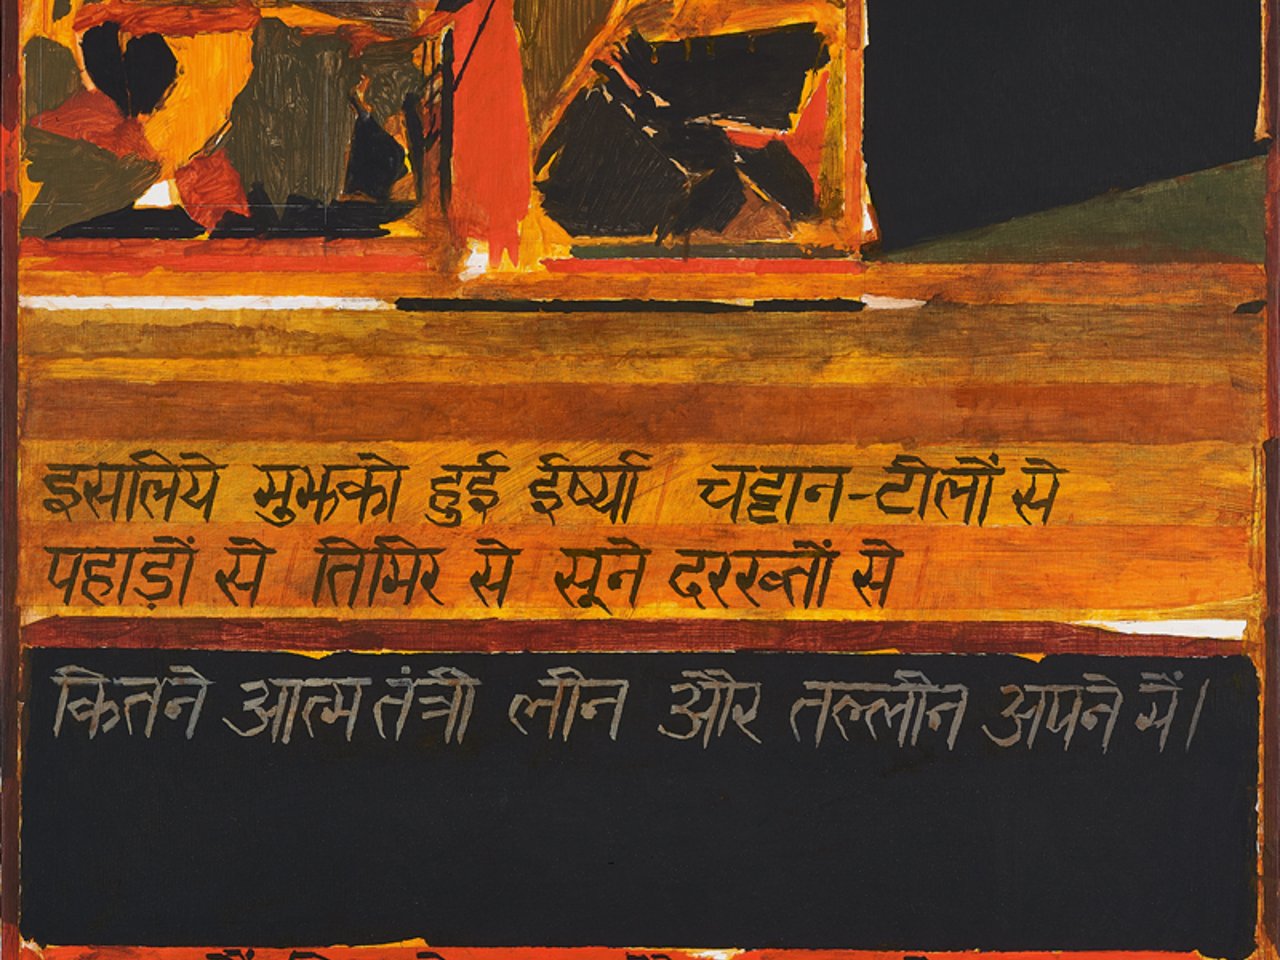 इसलिये मुझको हुई ईर्ष्या चट्टान-टीलों से
पहाड़ों से तिमिर से सूने दरख्तों से
कितने आत्म तंत्री लीन और तल्लीन अपने में।